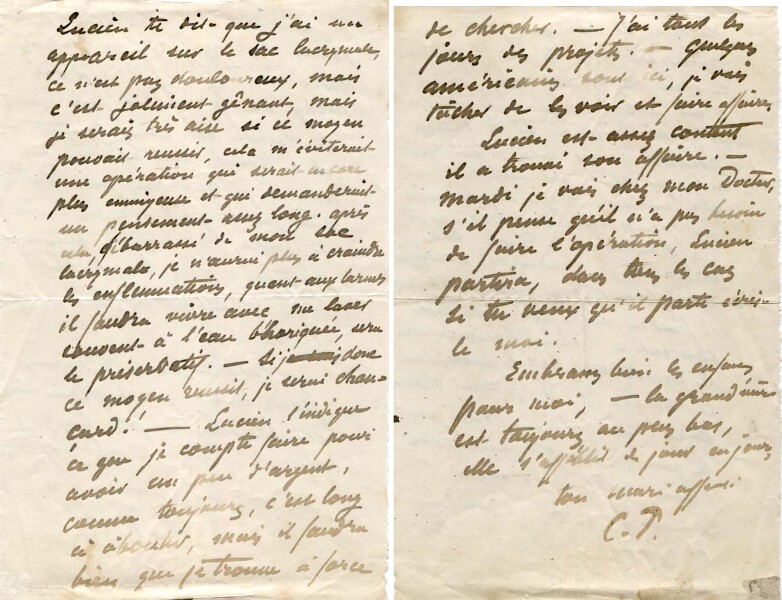 Lucien te dit que j'ai un
appareil sur le sac lacrymale,
ce n'est pas douloureux, mais
c'est joliment gênant, mais
je serais très aise si ce moyen
pouvait reussir, cela m'éviterait
une opération qui serait encore
plus ennuyeuse et qui demanderait
un pensement assez long. après
cela, débarrassé de mon sac
lacrymale, je n'aurai plus à craindre
les enflammations, quant aux larmes
il faudra vivre avec me laver
souvent à l'eau bhoriquée, sera
le préservatif. — Si donc
ce moyen reussit, je serai chan-
card! — Lucien t'indique
ce que je compte faire pour
avoir un peu d'argent,
comme toujours, c'est long
à aboutir, mais il faudra
bien que je trouve à force
de chercher. — J'ai tout les
jours des projets. — Quelques
américains sont ici, je vais
tâcher de les voir et faire affaires
Lucien est assez content
il a trouvé son affaire. —
Mardi je vais chez mon Docteur,
s'il pense qu'il n'a pas besoin
de faire l'opération, Lucien
partira, dans tous les cas
si tu veux qu'il parte écris-
le moi.
Embrasse bien les enfans
pour moi, — la grand'mère
est toujours au plus bas,
elle s'affaiblit de jour en jour,
ton mari affné
C. P.